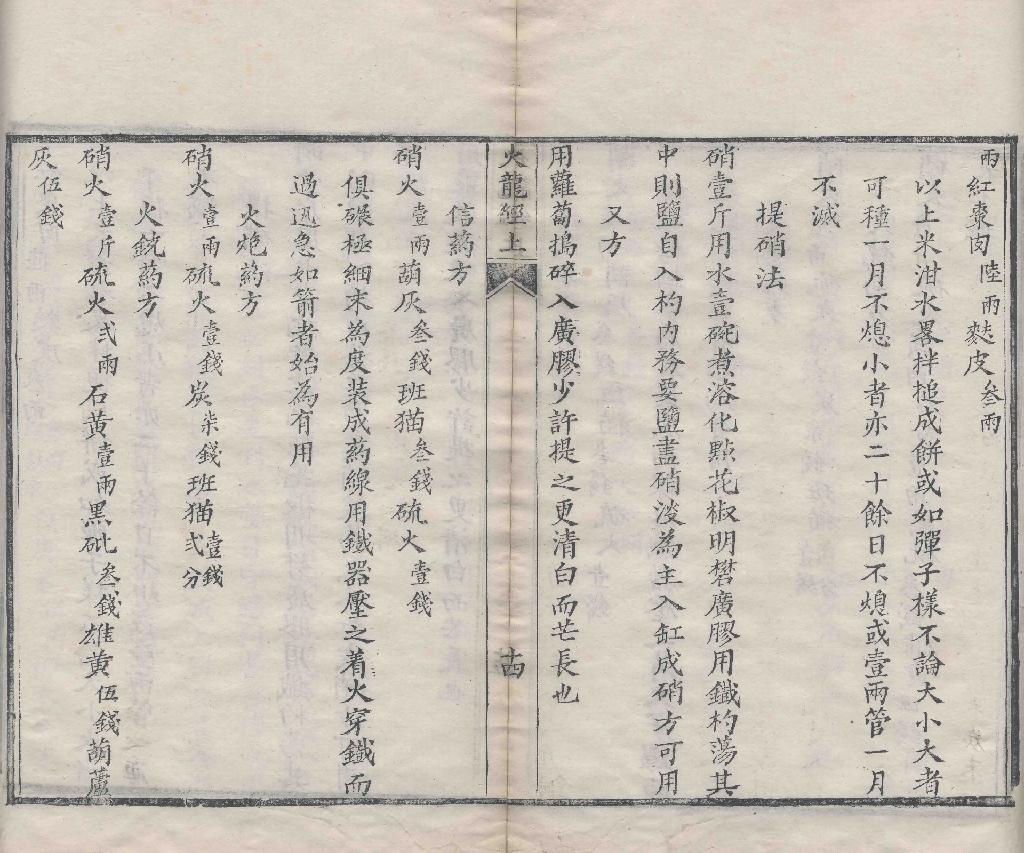 兩紅棗肉陸兩麩皮叁兩
以上米泔水畧拌搥成餅或如彈子樣不論大小大者
可種一月不熄小者亦二十餘日不熄或壹兩管一月
不滅
提硝法
硝壹斤用水壹碗煮溶化點花椒明礬廣膠用鐵杓蕩其
中則鹽自入杓内務要鹽盡硝淡為主入缸成硝方可用
又方
用蘿蔔搗碎入廣膠少許提之更清白而芒長也
火龍經上
十四
信葯方
硝火壹兩葫灰叁錢班猫叁錢硫火壹錢
俱碾極細末為度装成葯線用鐵器壓之着火穿鐵而
過迅急如箭者始為有用
火炮葯方
硝火壹兩硫火壹錢炭柒錢班猫壹錢弍分
火銃葯方
硝火壹斤硫火弍兩石黄壹兩黑砒叁錢雄黄伍錢葫蘆
灰伍錢